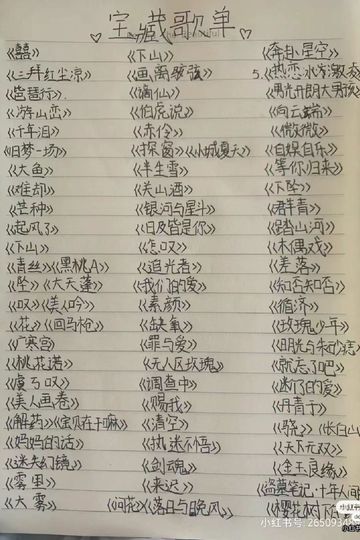 宝藏歌单
《囍》 《下山》 《奔赴星空》
《三拜红尘凉》 《画离弦》 5.《热恋冰
《琵琶行》 《谪仙》
《游山恋》 《伯虎说》 《向云端》
《千年泪》 《赤伶》 《微微》
《旧梦一场》 《探窗》《小城夏天》 《自娱自乐》
《大鱼》 《半生雪》 《等你归来》
《难却》 《关山酒》 《下坠》
《芒种》 《银河与星斗》 《群青》
《起风了》 《旧皆是你》 《踏山河》
《下山》 《怎叹》 《木偶戏》
《青丝》《黑桃A》 《追光者》 《差落》
《坠》《大天蓬》 《我们的爱》 《知否知否》
《叹》《美人吟》 《素颜》 《循济》
《花》《回马枪》 《缺氧》 《玫瑰少年》
《广寒宫》 《罪与爱》 《明光与朱砂痣》
《桃花诺》 《无人区玫瑰》 《就忘了吧》
《虞兮叹》 《调查中》 《断了的爱》
《美人画卷》 《赐我》 《丹青子》
《解药》《宝贝在干嘛》 《清空》 《骁》《长白山
《妈妈的话》 《执迷不悟》 《天下无双》
《迷失幻境》 《剑魂》 《金玉良缘》
《雾里》 《来迟》 《盗墓笔记·十年人间
《大雾》 《问花》《落日与晚风》 《樱花树下的
小红书
小红书号: 2650934